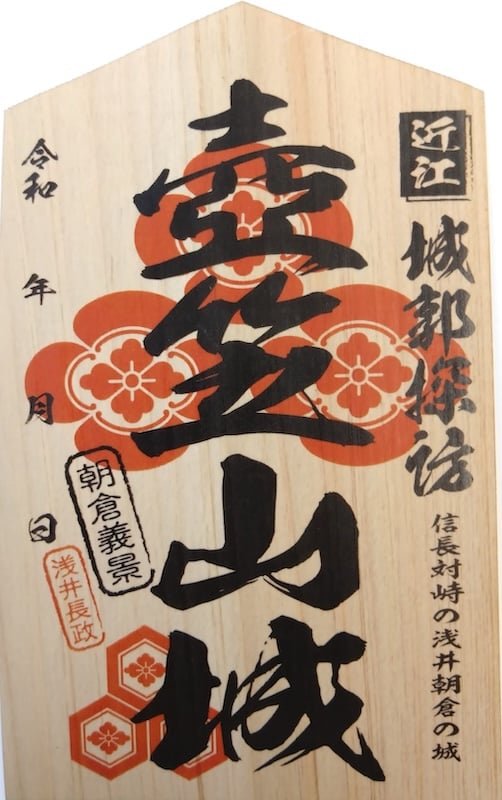 近江
城郭探訪
信長対峙の浅井朝倉の城
壺笠山城
令和 年 月 日
朝倉義景
浅井長政